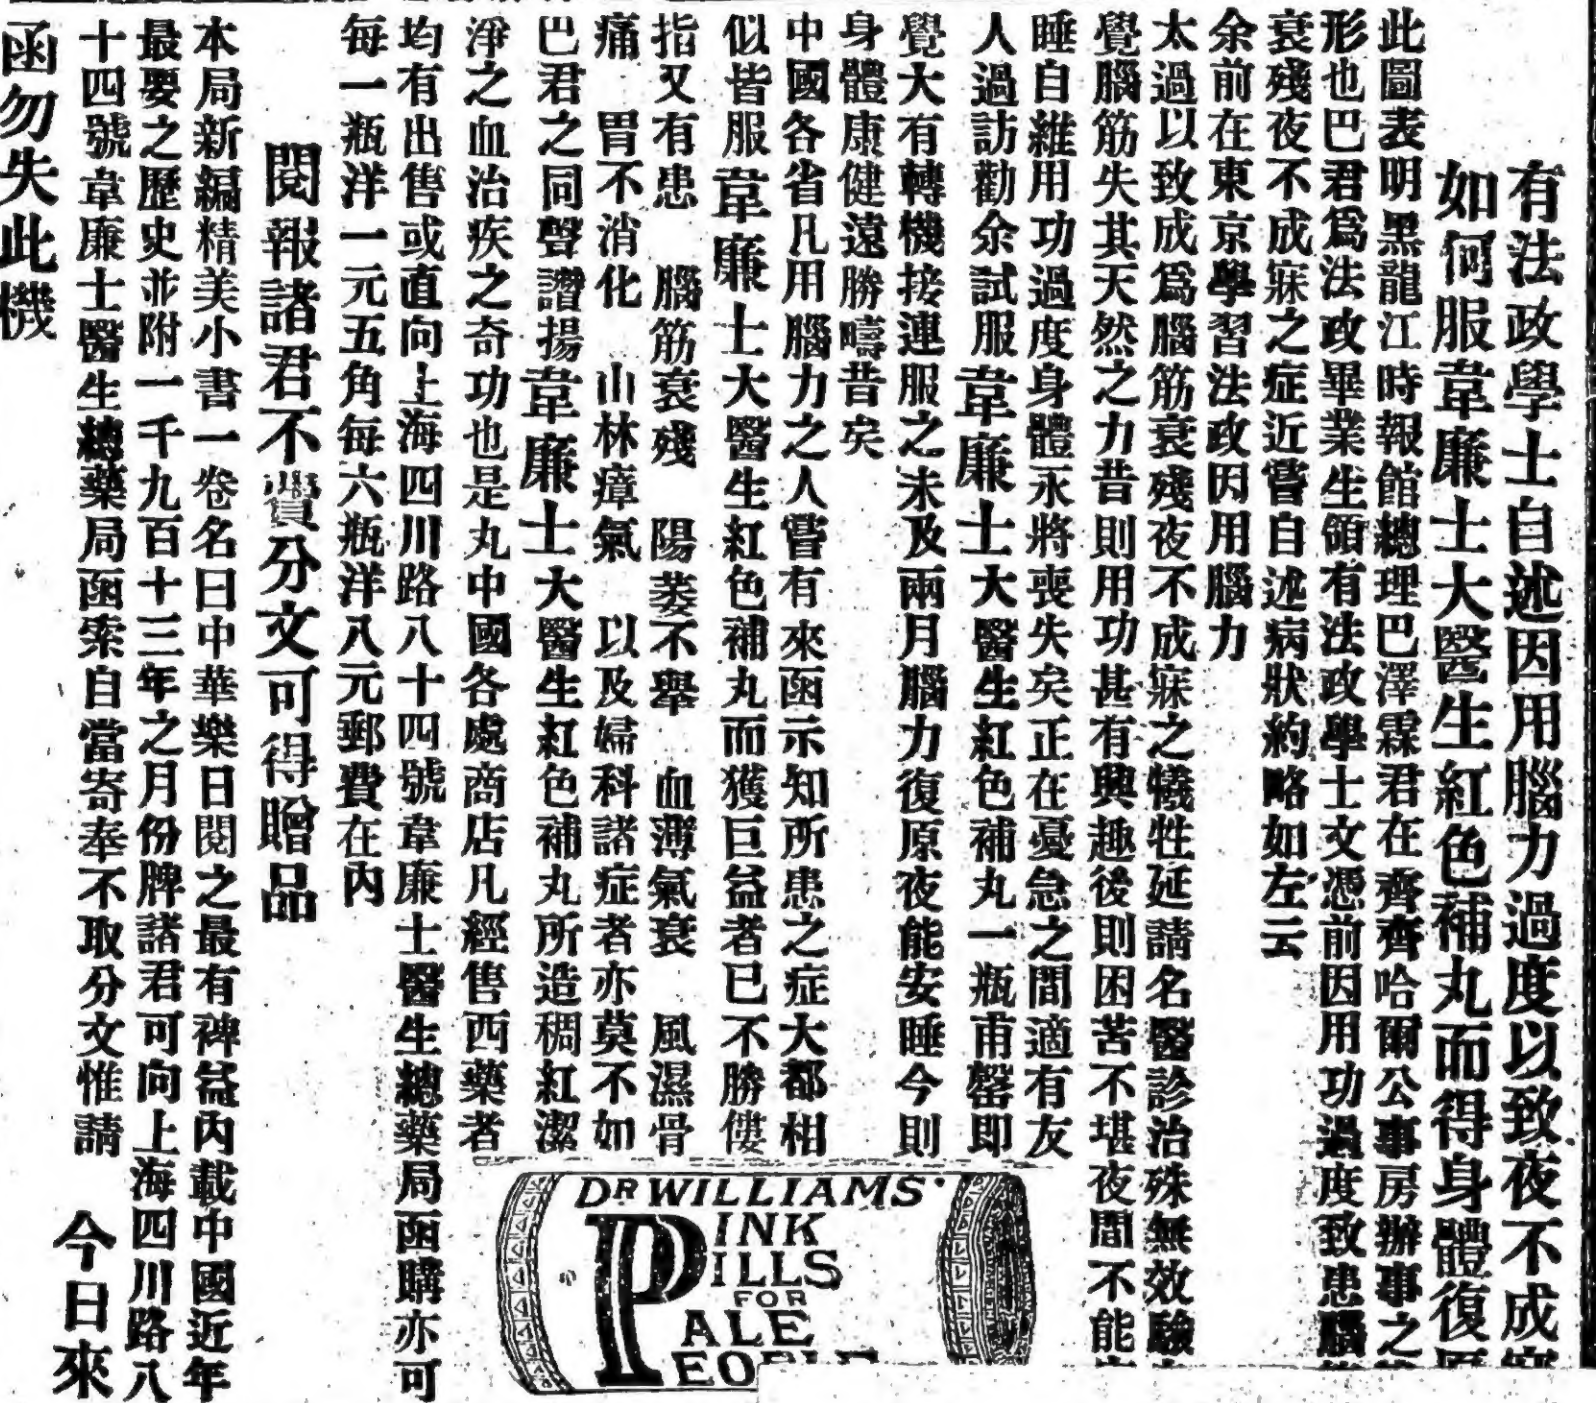 有法政學士自述因用腦力過度以致夜不成寐
如何服韋廉士大醫生紅色補丸而得身體復原
此圖表明黑龍江時報館總理巴澤霖君在齊齊哈爾公事房辦事之
形也巴君爲法政畢業生領有法政學士文憑前因用功過度致患腦
衰殘夜不成寐之症近嘗自述病狀約略如左云
余前在東京學習法政因用腦力
太過以致成爲腦筋衰殘夜不成寐之犧牲延請名醫診治殊無效驗
覺腦筋失其天然之力昔則用功甚有興趣後則困苦不堪夜間不能
睡自維用功過度身體永將喪失矣正在憂急之間適有友
人過訪勸余試服韋廉士大醫生紅色補丸一瓶甫罄即
覺大有轉機接連服之未及兩月腦力復原夜能安睡今則
身體康健遠勝疇昔矣
中國各省凡用腦力之人嘗有來函示知所患之症大都相
似皆服韋廉士大醫生紅色補丸而獲巨益者已不勝僂
指又有患 腦筋衰殘 陽萎不舉 血薄氣衰 風濕骨
痛 胃不消化 山林瘴氣 以及婦科諸症者亦莫不如
巴君之同聲讚揚韋廉士大醫生紅色補丸所造稠紅潔
淨之血治疾之奇功也是丸中國各處商店凡經售西藥者
均有出售或直向上海四川路八十四號韋廉士醫生總藥局函購亦可
每一瓶洋一元五角每六瓶洋八元郵費在內
閱報諸君不費分文可得贈品
本局新編精美小書一卷名曰中華樂日閱之最有裨益內載中國近年
最要之歷史並附一千九百十三年之月份牌諸君可向上海四川路八
十四號韋廉士醫生總藥局函索自當寄奉不取分文惟請 今日來
函勿失此機
DR WILLIAMS'
PINK
PILLS
FOR
PALE
PEOPLE